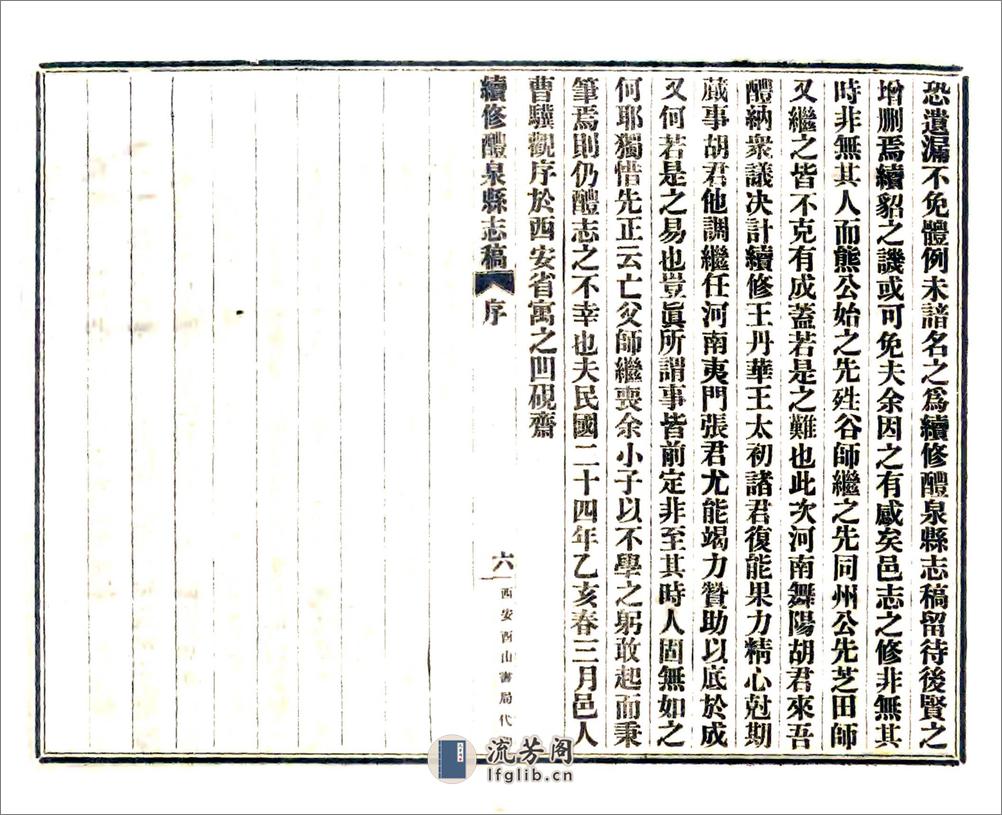 恐遺漏不免體例未諳名之爲續修醴泉縣志稿留待後賢之
增删焉續貂之譏或可免夫余因之有感矣邑志之修非無其
時非無其人而熊公始之先甡谷師繼之先同州公先芝田師
又繼之皆不克有成蓋若是之難也此次河南舞陽胡君來吾
醴納衆議決計續修王丹華王太初諸君復能果力精心尅期
蕆事胡君他調繼任河南夷門張君尤能竭力贊助以底於成
又何若是之易也豈眞所謂事皆前定非至其時人固無如之
何耶獨惜先正云亡父師繼喪余小子以不學之躬敢起而秉
筆焉則仍醴志之不幸也夫民國二十四年乙亥春三月邑人
曹驥觀序於西安省寓之凹硯齋
續修醴泉縣志稿 序 六 西安酉山書局代
流芳阁
lfglib.cn